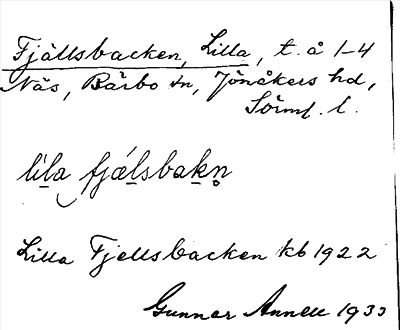 Fjällsbacken, Lilla, t. å 1-4
Näs, Bärbo sn, Jönåkers hd,
Sörml. l.
líla fjálsbakn̥
Lilla Fjellsbacken kb 1922
Gunnar Annell 1933